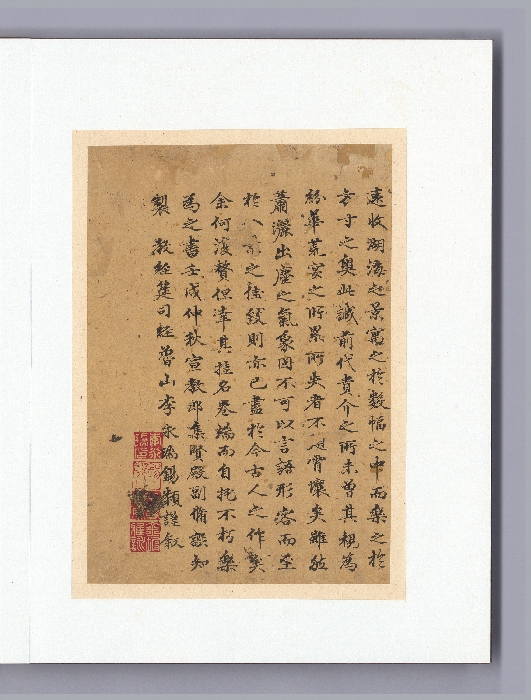 速收湖海之景寓之於數幅之中而樂之於
方寸之奥此誠前代貴介之所未曾其視為
紛華荒宴之所累所失者不 霄壤矣雖然
蕭灑出塵之氣象固不可以言語形容而至
於八景之 敍則亦已盡於今古人之作矣
余何復贅但幸其挂名卷端而自托不朽樂
為之書壬戌仲秋宣教郎集賢殿副脩撰知
製 教經筵司經 山李永瑞錫類謹叙